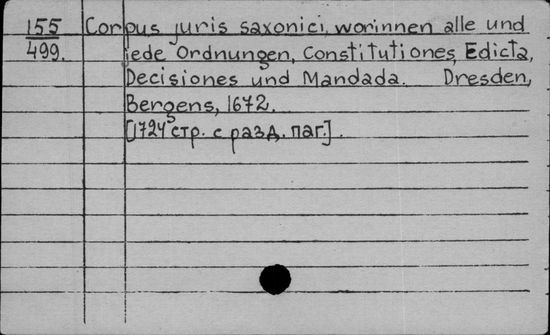 155 Corpus juris saxonici, worinnen alle und
499. jede Ordnungen, Constitutiones, Edicta,
Decisiones und Mandada. Dresden,
Bergens, 1672.
[1724 стр. с разд. паг.].